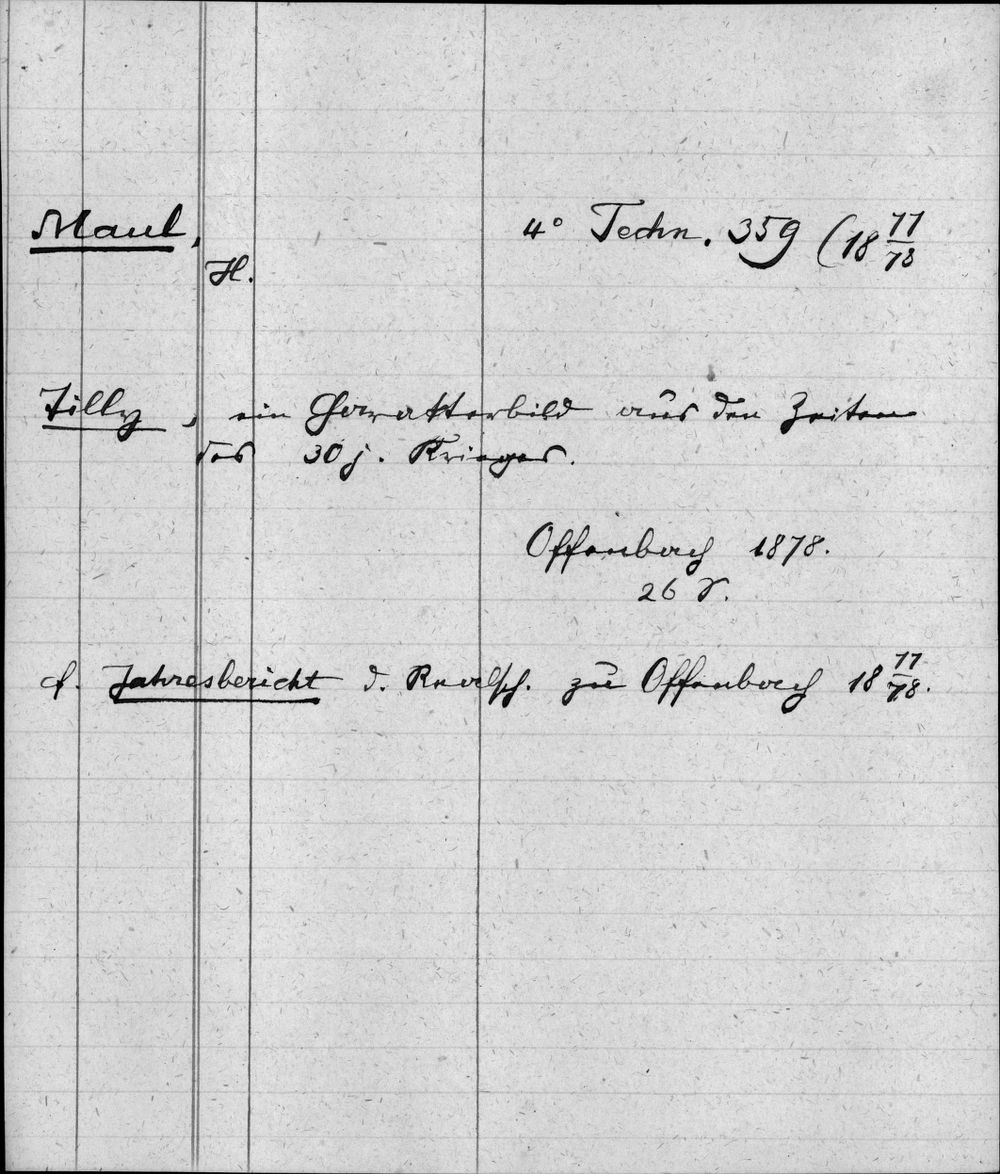 Maul, 4° Techn. 359 (18 77/78
H.
Tilly, ein Charakterbild aus den Zeiten
des 30 j. Krieges.
Offenbach 1878.
26 S.
cf. Jahresbericht d. Realsch. zu Offenbach 18 77/78.